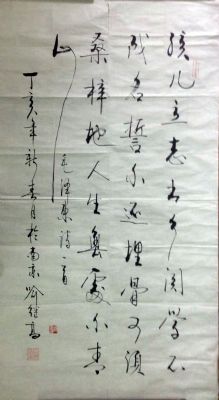 孩儿立志出乡関学不
成名誓不还埋骨何须
桑梓地人生無處不青
山
毛泽东诗一首
丁亥年新春月於南京喻继高